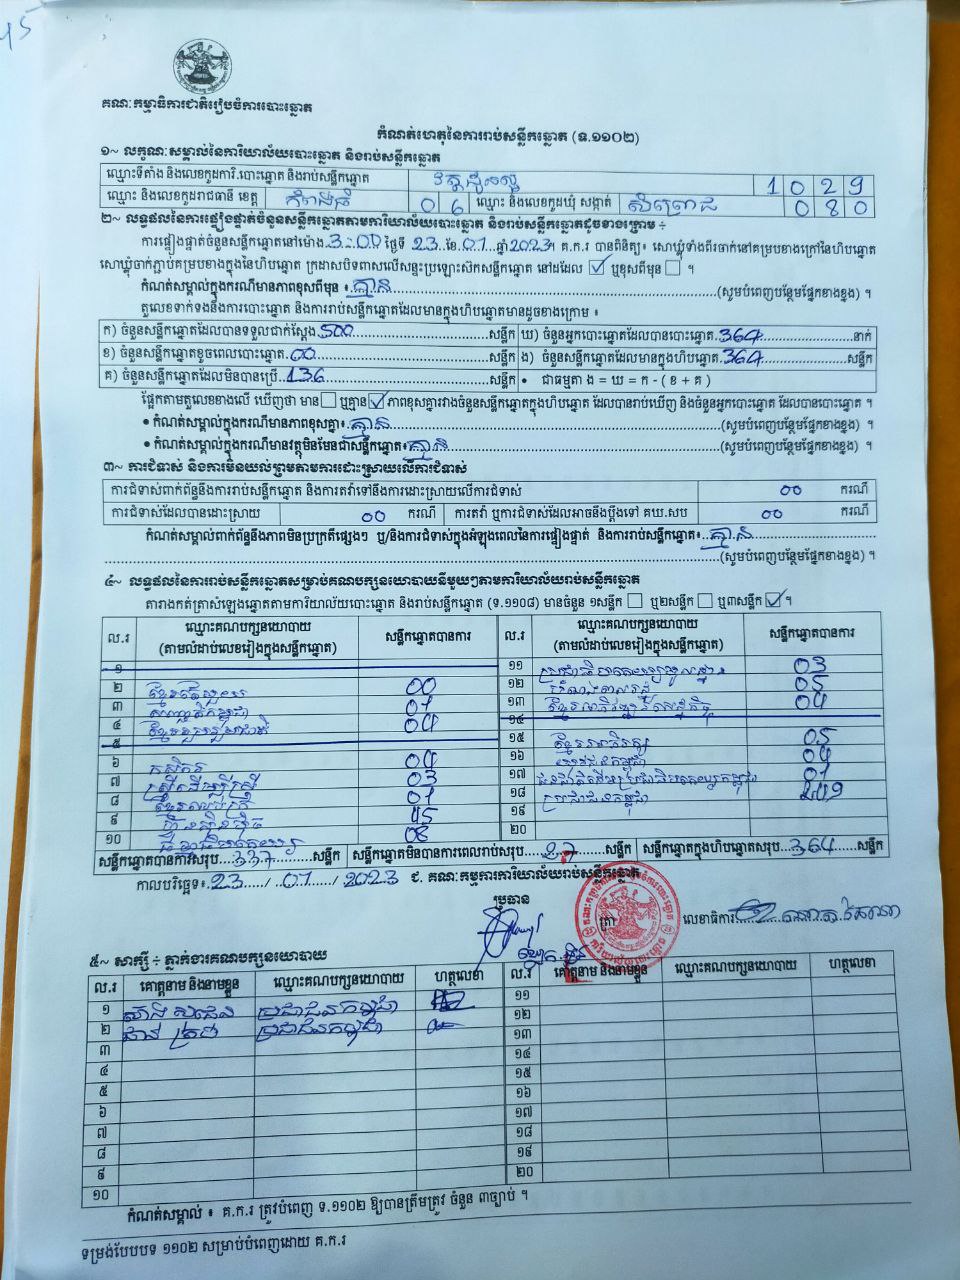 គណៈកម្មាធិការជាតិរៀបចំការបោះឆ្នោត
កំណត់ហេតុនៃការរាប់សន្លឹកឆ្នោត (ទ.១១០២)
១~ លក្ខណៈសម្គាល់នៃការិយាល័យបោះឆ្នោត និងរាប់សន្លឹកឆ្នោត
ឈ្មោះទីតាំង និងលេខកូដការិ.បោះឆ្នោត និងរាប់សន្លឹកឆ្នោត 1 0 2 9
ឈ្មោះ និងលេខកូដរាជធានី ខេត្ត កំពង់ធំ 0 6 ឈ្មោះ និងលេខកូដឃុំ សង្កាត់ 0 8 0
២~ លទ្ធផលនៃការផ្ទៀងផ្ទាត់ចំនួនសន្លឹកឆ្នោតតាមការិយាល័យបោះឆ្នោត និងរាប់សន្លឹកឆ្នោតដូចខាងក្រោម ÷
ការផ្ទៀងផ្ទាត់ចំនួនសន្លឹកឆ្នោតនៅម៉ោង 3:00 ថ្ងៃទី 23 ខែ 07 ឆ្នាំ 2023។ គ.ក.រ បានពិនិត្យ៖ សោឃ្លុំទាំងពីរចាក់នៅគម្របខាងក្រៅនៃហិបឆ្នោត
សោឃ្លុំចាក់ភ្ជាប់គម្របខាងក្នុងនៃហិបឆ្នោត ក្រដាសបិទពាសលើសន្ទះប្រឡោះស៊កសន្លឹកឆ្នោត នៅដដែល ☑ ឬខុសពីមុន ☐ ។
កំណត់សម្គាល់ក្នុងករណីមានភាពខុសពីមុន ៖ គ្មាន (សូមបំពេញបន្ថែមផ្នែកខាងខ្នង) ។
តួលេខទាក់ទងនឹងការបោះឆ្នោត និងការរាប់សន្លឹកឆ្នោតដែលមានក្នុងហិបឆ្នោតមានដូចខាងក្រោម ៖
ក) ចំនួនសន្លឹកឆ្នោតដែលបានទទួលជាក់ស្តែង 500 សន្លឹក ឃ) ចំនួនអ្នកបោះឆ្នោតដែលបានបោះឆ្នោត 364 នាក់
ខ) ចំនួនសន្លឹកឆ្នោតខូចពេលបោះឆ្នោត 00 សន្លឹក ង) ចំនួនសន្លឹកឆ្នោតដែលមានក្នុងហិបឆ្នោត 364 សន្លឹក
គ) ចំនួនសន្លឹកឆ្នោតដែលមិនបានប្រើ 136 សន្លឹក • ជាធម្មតា ង = ឃ = ក - ( ខ + គ )
ផ្អែកតាមតួលេខខាងលើ ឃើញថា មាន ☐ ឬគ្មាន ☑ ភាពខុសគ្នារវាងចំនួនសន្លឹកឆ្នោតក្នុងហិបឆ្នោត ដែលបានរាប់ឃើញ និងចំនួនអ្នកបោះឆ្នោត ដែលបានបោះឆ្នោត ។
• កំណត់សម្គាល់ក្នុងករណីមានភាពខុសគ្នា៖ គ្មាន (សូមបំពេញបន្ថែមផ្នែកខាងខ្នង) ។
• កំណត់សម្គាល់ក្នុងករណីមានវត្ថុមិនមែនជាសន្លឹកឆ្នោត៖ គ្មាន (សូមបំពេញបន្ថែមផ្នែកខាងខ្នង) ។
៣~ ការជំទាស់ និងការមិនយល់ព្រមតាមការដោះស្រាយលើការជំទាស់
ការជំទាស់ពាក់ព័ន្ធនឹងការរាប់សន្លឹកឆ្នោត និងការតវ៉ាទៅនឹងការដោះស្រាយលើការជំទាស់ 00 ករណី
ការជំទាស់ដែលបានដោះស្រាយ 00 ករណី ការតវ៉ា ឬការជំទាស់ដែលអាចនឹងប្តឹងទៅ គឃ.សប 00 ករណី
កំណត់សម្គាល់ពាក់ព័ន្ធនឹងភាពមិនប្រក្រតីផ្សេងៗ ឬ/និងការជំទាស់ក្នុងអំឡុងពេលនៃការផ្ទៀងផ្ទាត់ និងការរាប់សន្លឹកឆ្នោត៖ គ្មាន
(សូមបំពេញបន្ថែមផ្នែកខាងខ្នង) ។
៤~ លទ្ធផលនៃការរាប់សន្លឹកឆ្នោតសម្រាប់គណបក្សនយោបាយនីមួយៗតាមការិយាល័យរាប់សន្លឹកឆ្នោត
តារាងកត់ត្រាសំឡេងឆ្នោតតាមការិយាល័យបោះឆ្នោត និងរាប់សន្លឹកឆ្នោត (ទ.១១០៨) មានចំនួន ១សន្លឹក ☐ ឬ២សន្លឹក ☐ ឬ៣សន្លឹក ☑ ។
ល.រ ឈ្មោះគណបក្សនយោបាយ (តាមលំដាប់លេខរៀងក្នុងសន្លឹកឆ្នោត) សន្លឹកឆ្នោតបានការ ល.រ ឈ្មោះគណបក្សនយោបាយ (តាមលំដាប់លេខរៀងក្នុងសន្លឹកឆ្នោត) សន្លឹកឆ្នោតបានការ
១ ១១ 03
២ 00 ១២ 05
៣ 07 ១៣ 04
៤ 04 ១៤
៥ ១៥ 05
៦ កសិករ 04 04
៧ ស្ត្រីដើម្បីស្ត្រី 03 ១៧ 07
៨ 07 ១៨ ប្រជាជនកម្ពុជា 279
៩ 45 ១៩
១០ 08 ២០
សន្លឹកឆ្នោតបានការសរុប 337 សន្លឹក សន្លឹកឆ្នោតមិនបានការពេលរាប់សរុប 27 សន្លឹក សន្លឹកឆ្នោតក្នុងហិបឆ្នោតសរុប 364 សន្លឹក
កាលបរិច្ឆេទ៖ 23 / 07 / 2023 ជ. គណៈកម្មការការិយាល័យរាប់សន្លឹកឆ្នោត
ប្រធាន ត្រា លេខាធិការ
៥~ សាក្សី ÷ ភ្នាក់ងារគណបក្សនយោបាយ
ល.រ គោត្តនាម និងនាមខ្លួន ឈ្មោះគណបក្សនយោបាយ ហត្ថលេខា ល.រ គោត្តនាម និងនាមខ្លួន ឈ្មោះគណបក្សនយោបាយ ហត្ថលេខា
១ ប្រជាជនកម្ពុជា ១១
២ ប្រជាជនកម្ពុជា ១២
៣ ១៣
៤ ១៤
៥ ១៥
៦ ១៦
៧ ១៧
៨ ១៨
៩ ១៩
១០ ២០
កំណត់សម្គាល់ ៖ គ.ក.រ ត្រូវបំពេញ ទ.១១០២ ឱ្យបានត្រឹមត្រូវ ចំនួន ៣ច្បាប់ ។
ទម្រង់បែបបទ ១១០២ សម្រាប់បំពេញដោយ គ.ក.រ